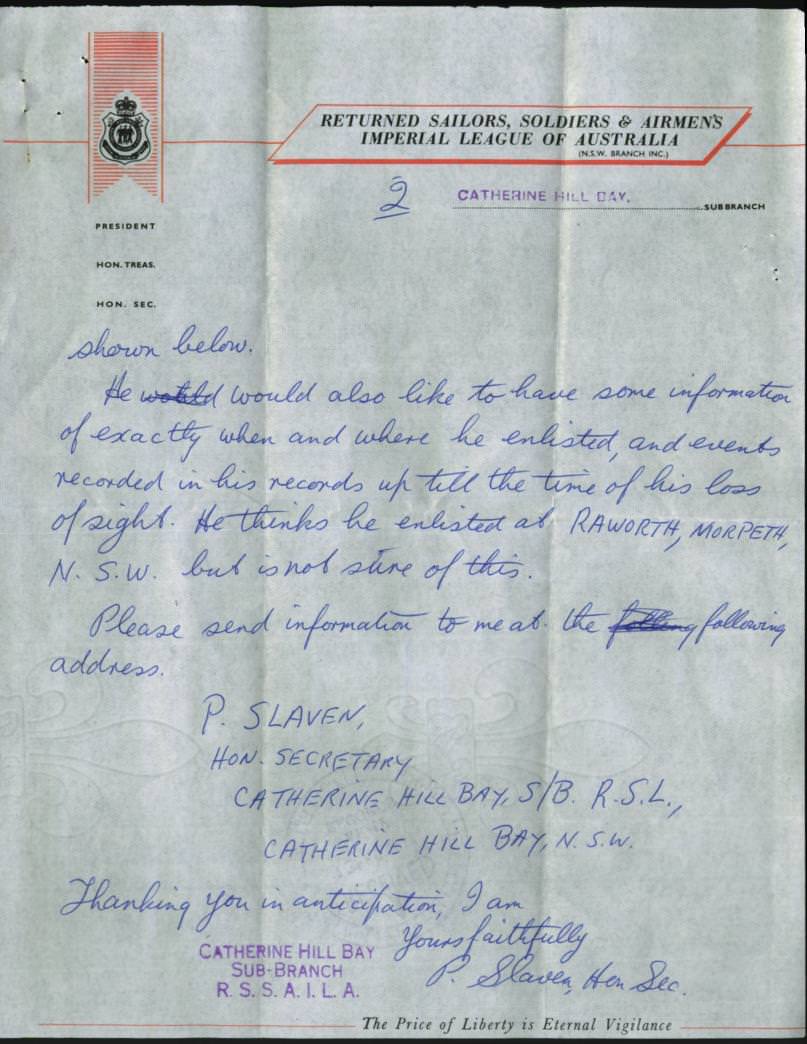 RETURNED SAILORS, SOLDIERS & AIRMEN'S
IMPERIAL LEAGUE OF AUSTRALIA
(N.S.W. BRANCH INC.)
2
CATHERINE HILL BAY.
SUB BRANCH
PRESIDENT
HON. TREAS.
HON. SEC.
shown below.
He would would also like to have some information
of exactly when and where he enlisted, and events
recorded in his records up till the time of his loss
of sight. He thinks he enlisted at RAWORTH, MORPETH,
N. S. W. but is not sure of this.
Please send information to me at the following
address.
P. SLAVEN,
HON. SECRETARY
CATHERINE HILL BAY, S/B. R.S.L.,
CATHERINE HILL BAY, N. S.W.
Thanking you in anticipation, I am
Yours faithfully
P. Slaven, Hon Sec.
CATHERINE HILL BAY
SUB-BRANCH
R. S. S. A. I. L. A.
The Price of Liberty is Eternal Vigilance